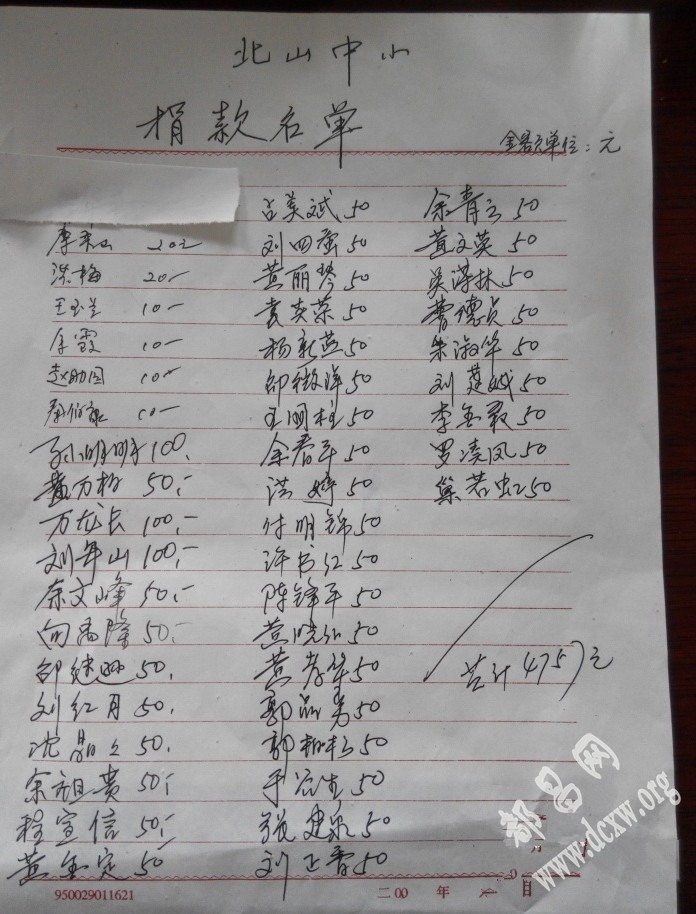 北山中小
捐款名单
金额单位：元
李 20
洪梅 20-
王玉兰 10-
余霞 10-
赵 10-
10-
孙明明 100.
黄万柏 50.-
万龙长 100.-
刘年山 100.-
余文峰 50.-
向 隆 50.-
邵继 50.
刘红月 50.
沈晶 50.
余祖贵 50.-
程宣信 50.-
黄金定 50
占英斌 50
刘四 50
黄丽琴 50
袁英荣 50
杨新燕 50
邵微洋 50
王明柱 50
余春平 50
洪婷 50
付明锦 50
许书红 50
陈锋平 50
黄晓 50
黄孝华 50
郭 50
郭 50
于 50
张建泉 50
刘正香 50
余青云 50
黄文英 50
吴泽林 50
曹德贞 50
朱淑华 50
刘莲 50
李金 50
罗凌凤 50
巢若虹 50
共计 4757元
950029011621
二00 年 月
都昌网
www.dcxw.org